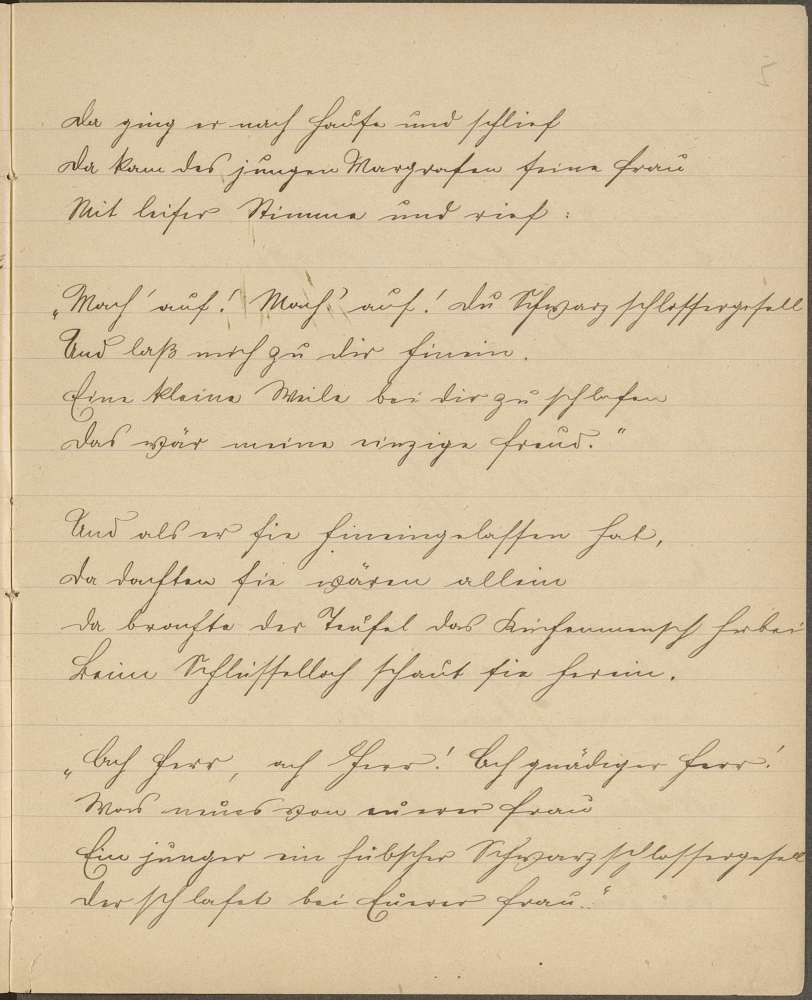 5
Da ging er nach Hause und schlief
Da kam des jungen Margrafen seine Frau
Mit leiser Stimme und rief:
„Mach' auf! Mach' auf! Du Schwarzschlossergesell
Und laß mich zu dir hinein.
Eine kleine Weile bei dir zu schlafen
Das wär meine einzige Freud."
Und als er sie hineingelassen hat,
Da dachten sie wären allein
Da brachte der Teufel das Küchenmensch herbei
Beim Schlüsselloch schaut sie herein.
„Ach Herr, ach Herr! Ach gnädiger Herr!
Was neues von euerer Frau
Ein junger ein hübscher Schwarzschlossergesell
Der schlafet bei Euerer Frau."